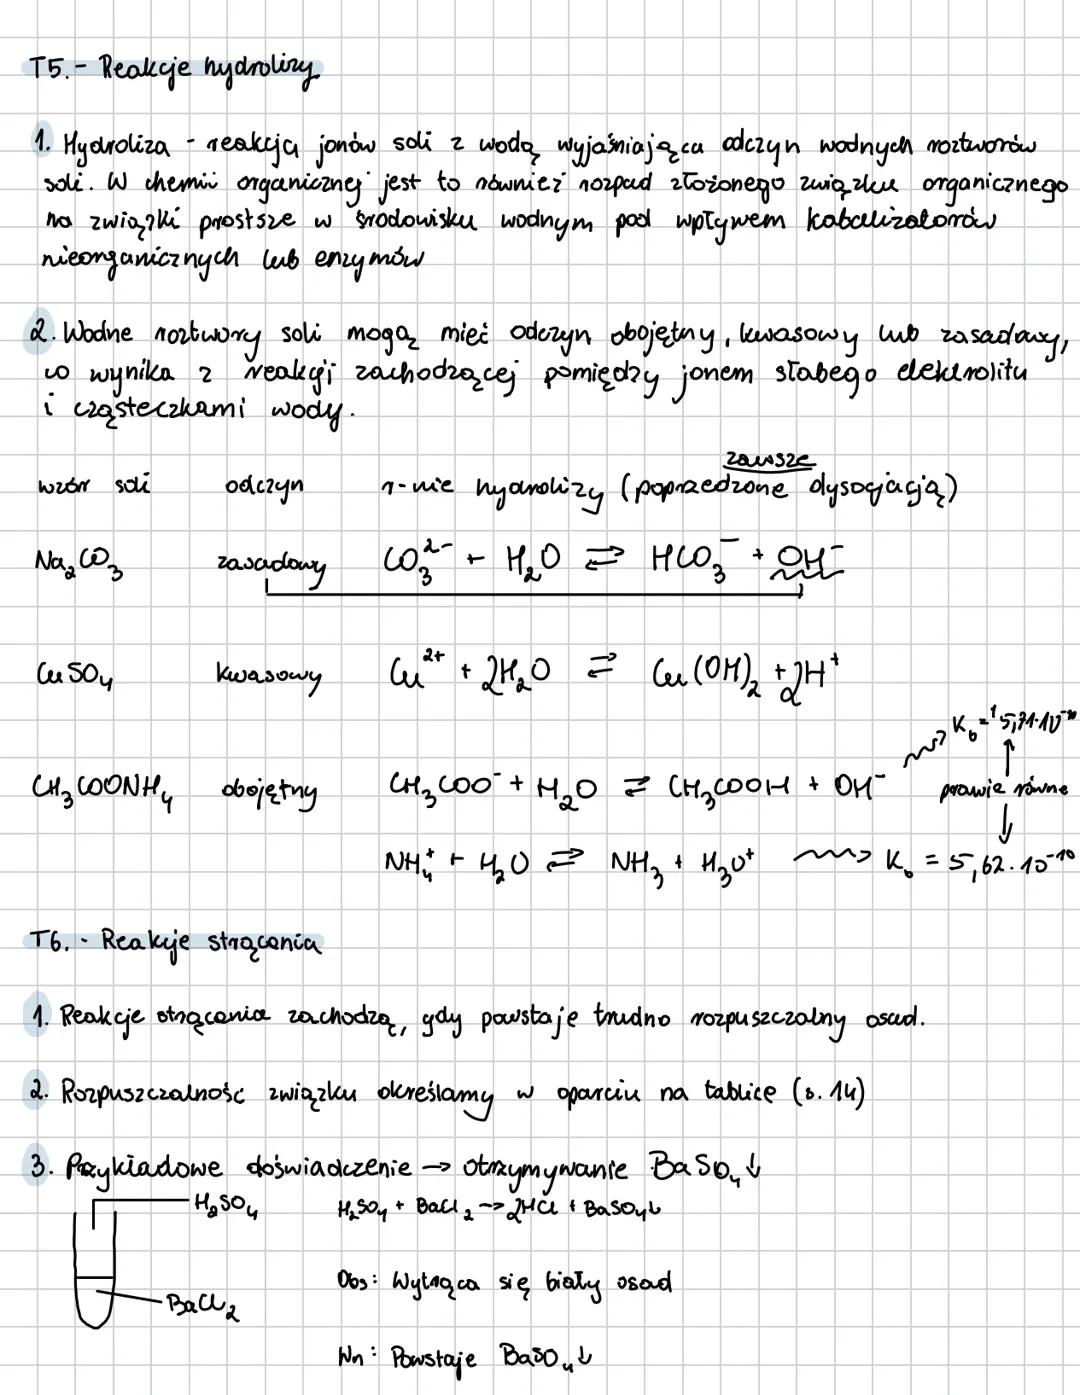 T5.- Reakcje hydrolizy
1. Hydroliza - reakcja jonów soli z wodą wyjaśniająca odczyn wodnych roztworów
soli. W chemii organicznej jest to również rozpad złożonego związku organicznego
na związki prostsze w środowisku wodnym pod wpływem katalizatorów
nieorganicznych lub enzymów
2. Wodne roztwory soli mogą mieć odczyn obojętny, kwasowy lub zasadowy,
co wynika z reakcji zachodzącej pomiędzy jonem słabego elektrolitu
i cząsteczkami wody.
zawsze
wzór soli odczyn r-nie hydrolizy (poprzedzone dysocjacją)
Na₂CO₃ zasadowy CO₃²⁻ + H₂O ⇄ HCO₃⁻ + OH⁻
CuSO₄ kwasowy Cu²⁺ + 2H₂O ⇄ Cu(OH)₂ + 2H⁺
CH₃COONH₄ obojętny CH₃COO⁻ + H₂O ⇄ CH₃COOH + OH⁻
prawie równe
NH₄⁺ + H₂O ⇄ NH₃ + H₃O⁺ K_b = 5,62·10⁻¹⁰
T6.- Reakcje strącania
1. Reakcje strącania zachodzą, gdy powstaje trudno rozpuszczalny osad.
2. Rozpuszczalność związku określamy w oparciu na tablice (s. 14)
3. Przykładowe doświadczenie → otrzymywanie BaSO₄↓
H₂SO₄ H₂SO₄ + BaCl₂ → 2HCl + BaSO₄↓
Obs: Wytrąca się biały osad
BaCl₂
Wn: Powstaje BaSO₄↓